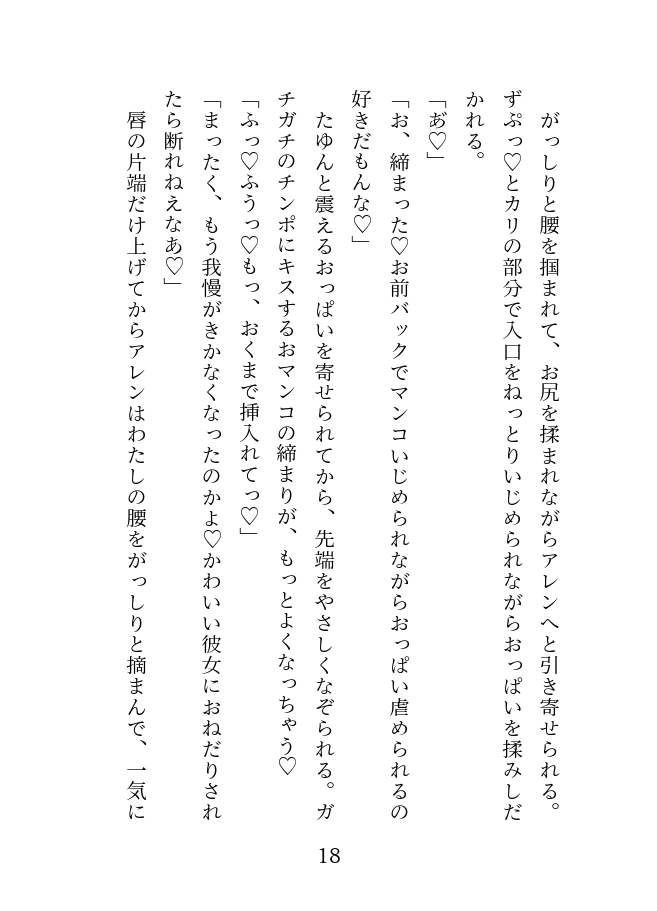 がっしりと腰を掴まれて、お尻を揉まれながらアレンへと引き寄せられる。
ずぷっ♡とカリの部分で入口をねっとりいじめられながらおっぱいを揉みしだ
かれる。
「あ゙♡」
「お、締まった♡お前バックでマンコいじめられながらおっぱい虐められるの
好きだもんな♡」
　たゆんと震えるおっぱいを寄せられてから、先端をやさしくなぞられる。ガ
チガチのチンポにキスするおマンコの締まりが、もっとよくなっちゃう♡
「ふっ♡ふうっ♡もっ、おくまで挿入れてっ♡」
「まったく、もう我慢がきかなくなったのかよ♡かわいい彼女におねだりされ
たら断れねえなあ♡」
　唇の片端だけ上げてからアレンはわたしの腰をがっしりと摘まんで、一気に
18